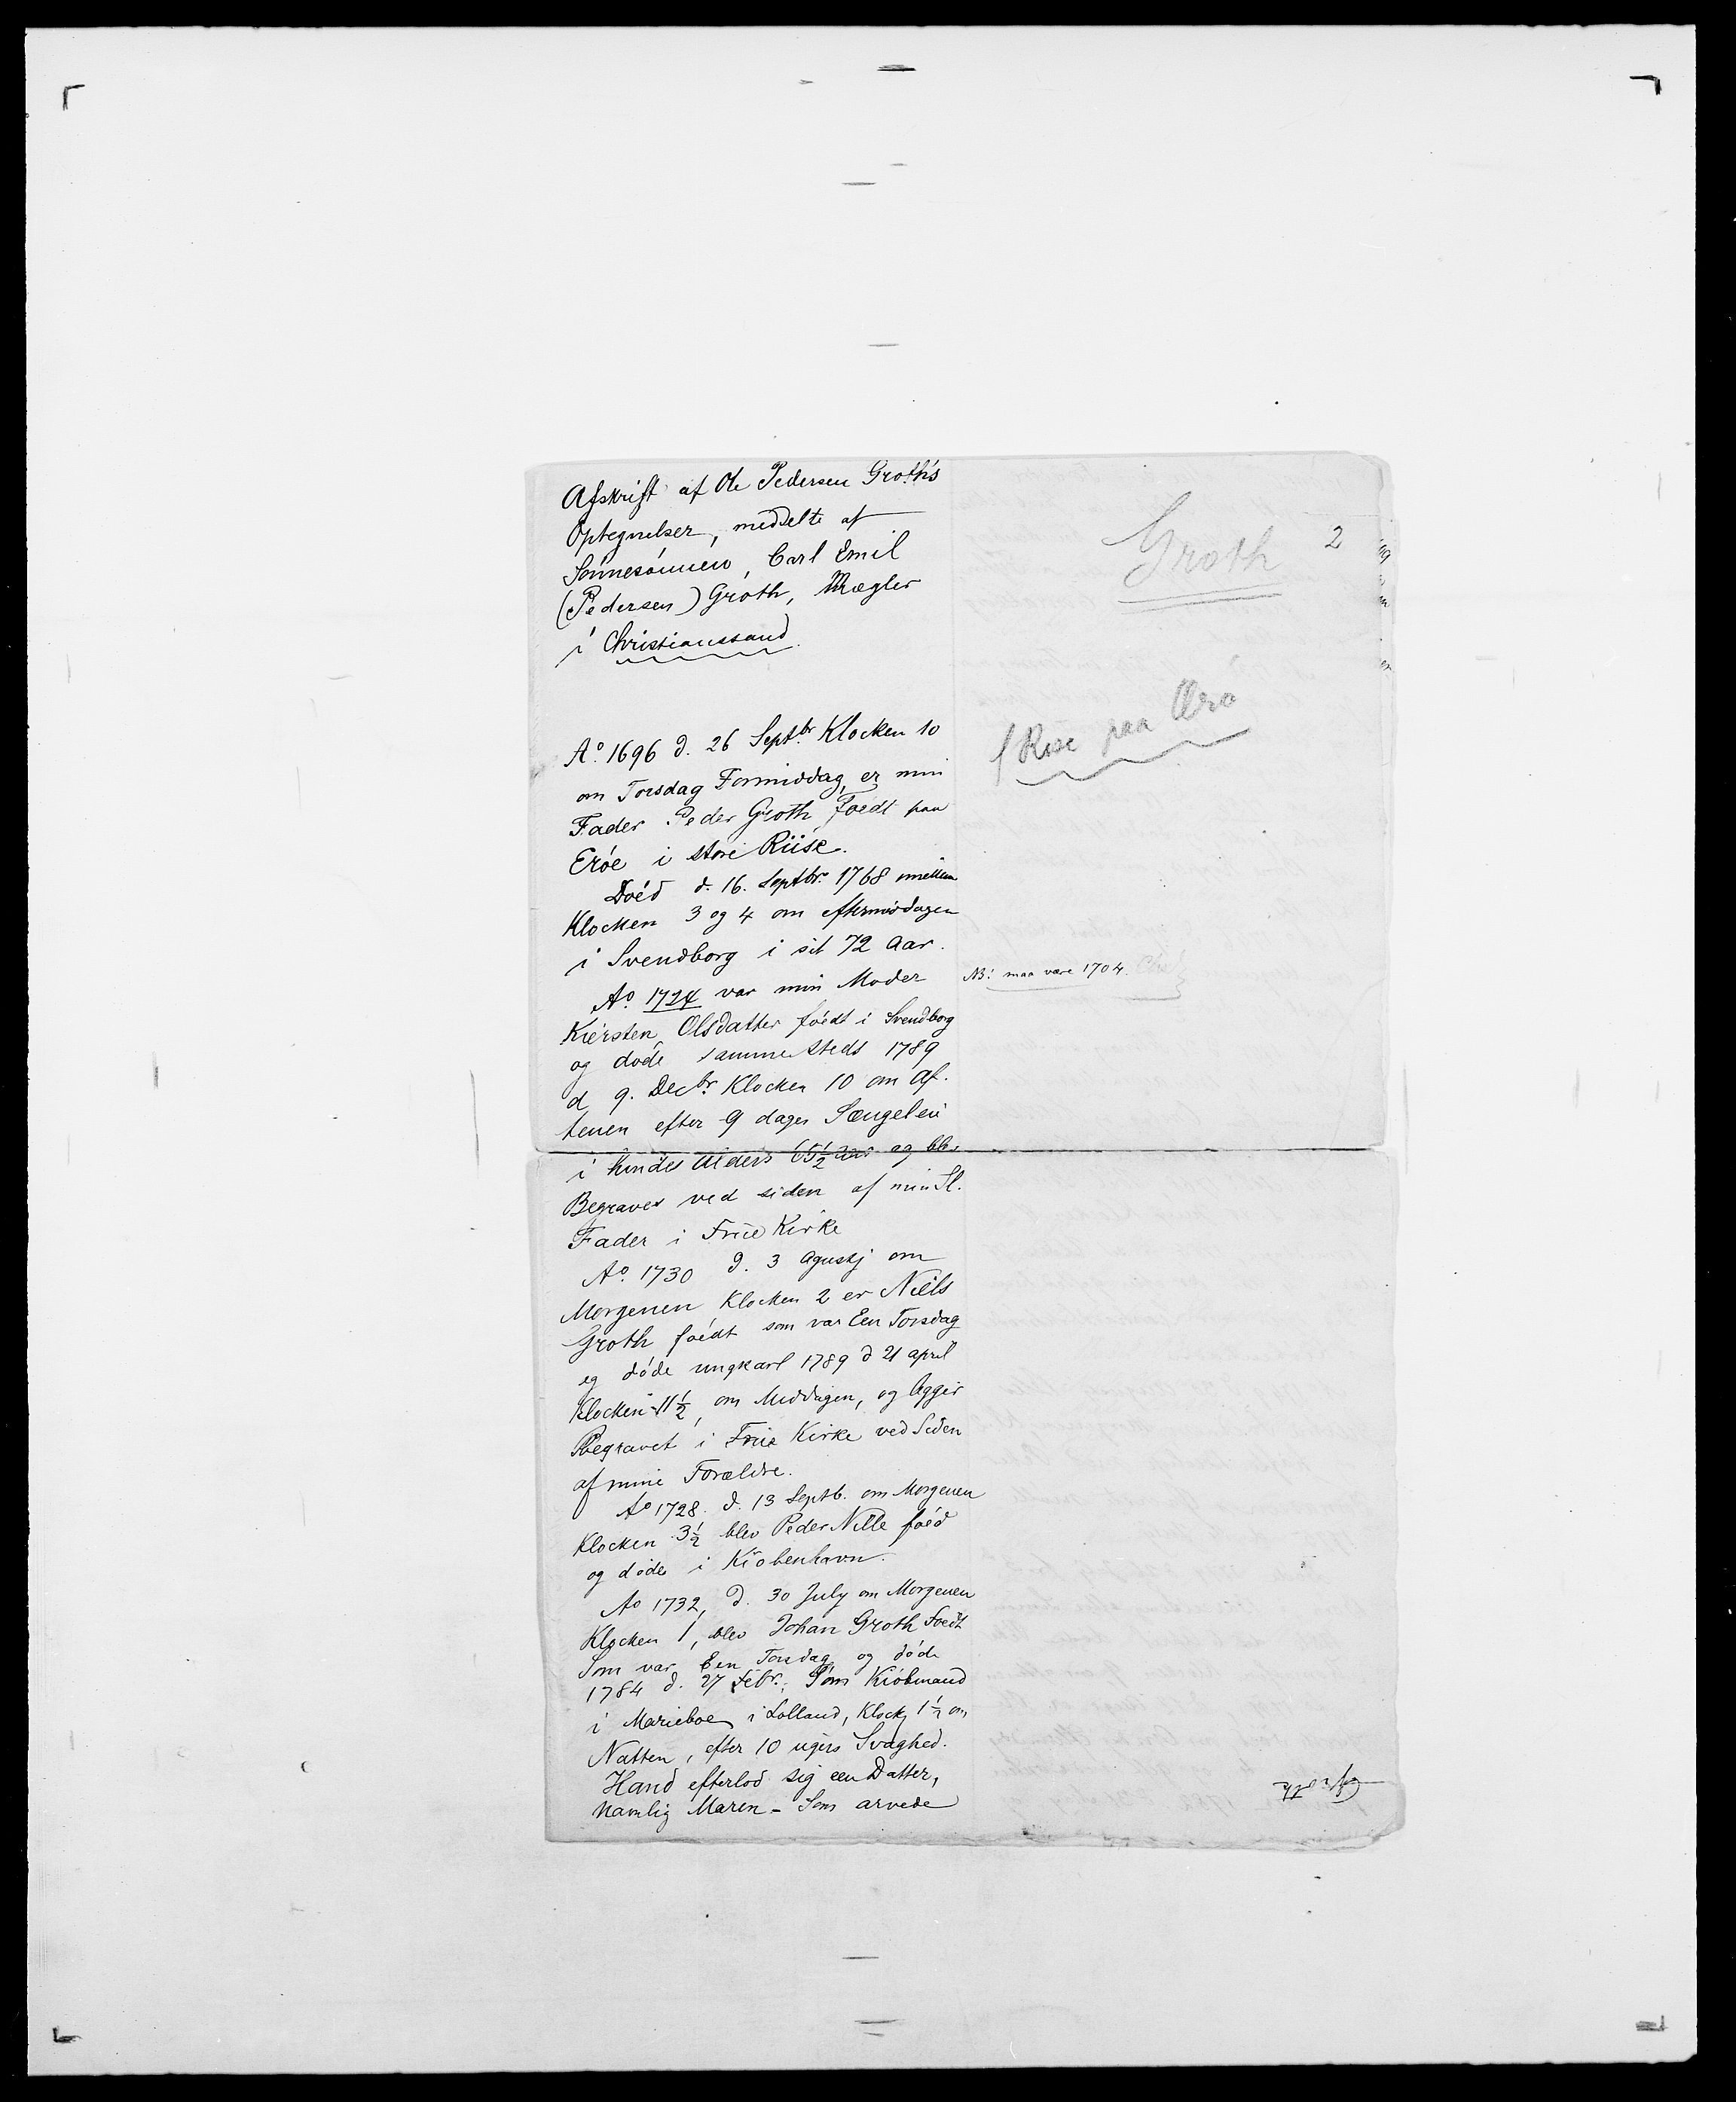 Afskrift af Ole Pedersen Groth's
Optegnelser, meddelte af
Sønnesønnen, Carl Emil
(Pedersen) Groth, Mægler
i Christianssand.
Groth 2
Aº. 1696 d. 26 Septbr. Klocken 10
om Torsdag Formiddag, er min
Fader Peder Groth Foedt paa
Eröe i store Riise.
ſ Rise paa Ærø
Döed d. 16. Septbr. 1768 mellem
Klocken 3 og 4 om eftermiddagen
i Svendborg i sit 72 Aar.
Aº. 1724 var min Moder
NB! maa være 1704.
Kiersten Olsdatter föedt i Svendborg
og döde sammesteds 1789
d 9. Decbr. Klocken 10 om Af-
tenen efter 9 dages Sængeleie
i hendes Alders 65½ Aar og blev
Begravet ved siden af min Sl.
Fader i Frue Kirke
Aº. 1730 d. 3 Agustj om
Morgenen Klocken 2 er Niels
Groth föedt som var Een Torsdag
og döde ungkarl 1789 d 21 april
Klocken 11½, om Middagen, og ligger
Begravet i Frue Kirke ved Siden
af mine Forældre.
Aº 1728. d. 13 Septb. om Morgenen
Klocken 3½ blev Peder Nille föed
og döde i Kiöbenhavn.
Ao 1732, d. 30 July om Morgenen
Klocken 1, blev Johan Groth Foedt
Som var Een Torsdag og döde
1784 d. 27 Febr. Som Kiöbmand
i Marieboe i Lolland, Klock 1½ om
Natten, efter 10 ugers Svaghed.
Hand efterlod sig een Datter,
Namlig Maren - Som arvede
Groth